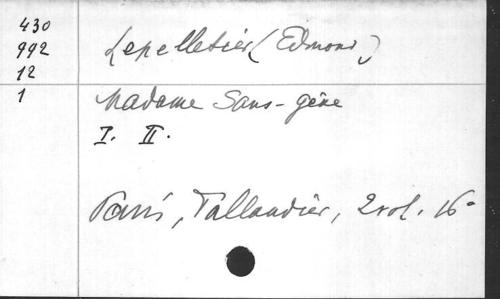 430
992
12
1
Lepelletier (Edmond)
Madame Sans-gêne
I. II.
Paris, Tallandier, 2 vol. 16°